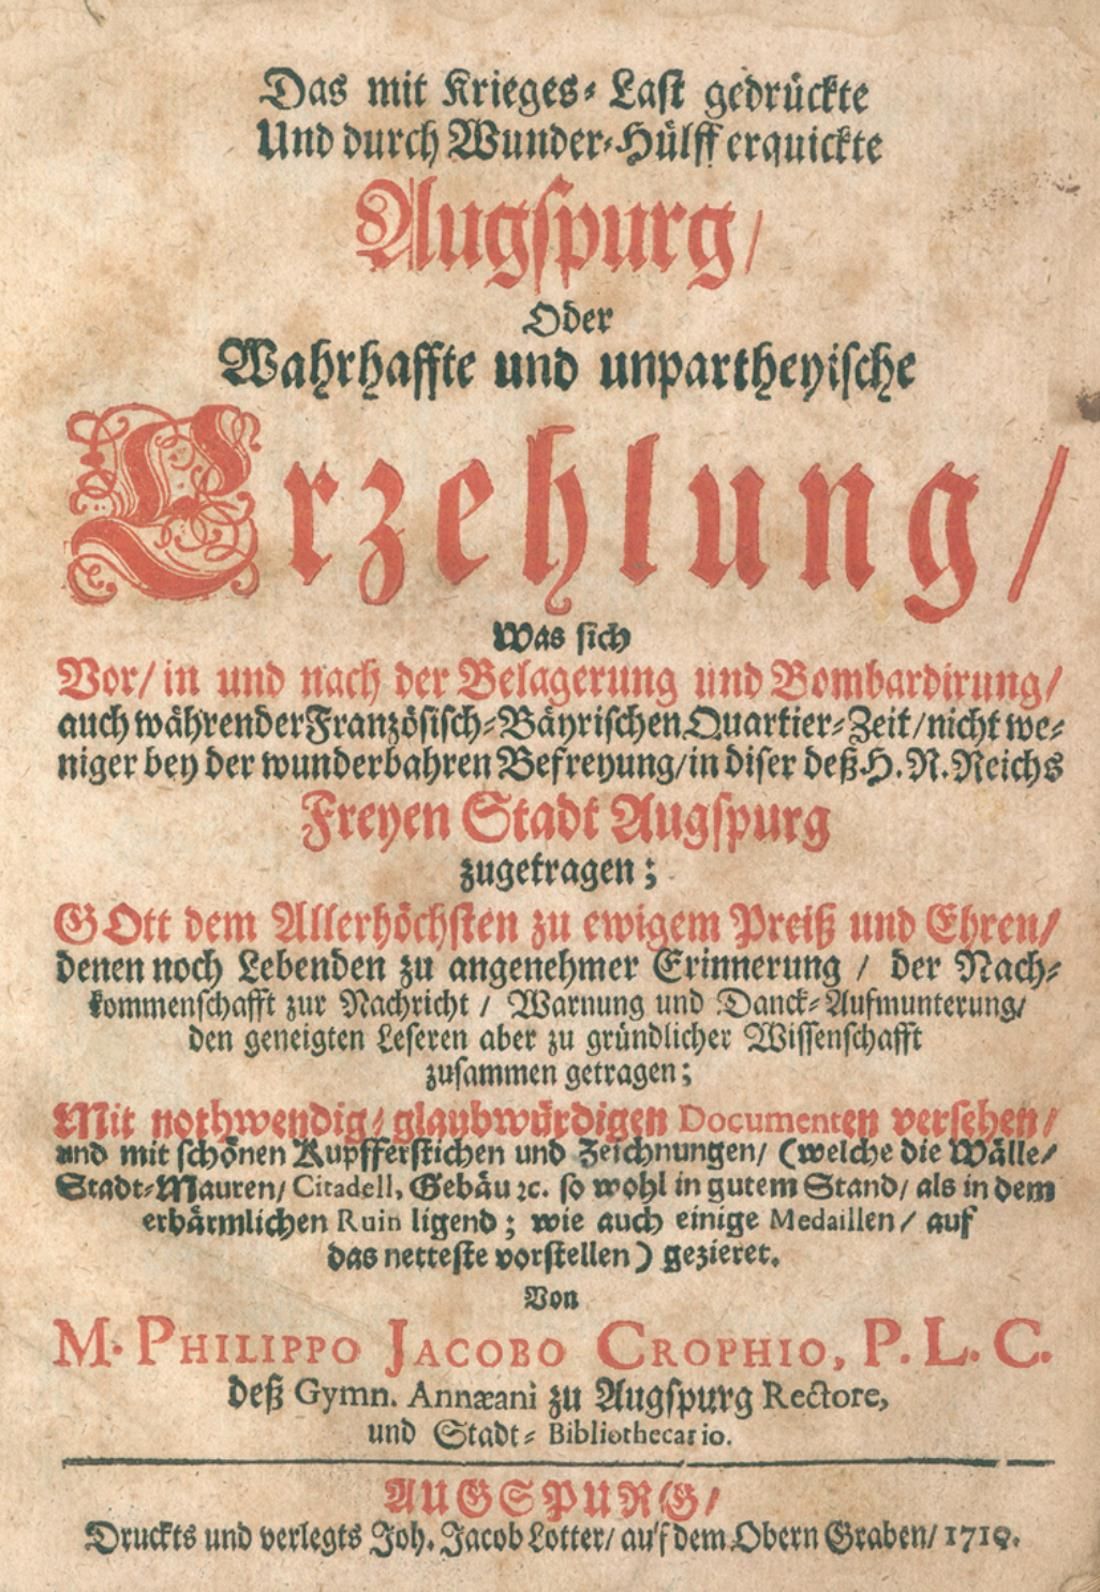 Das mit Krieges⸗Last gedrückte
Und durch Wunder⸗Hülff erquickte
Augspurg/
Oder
Wahrhaffte und unpartheyische
Erzehlung/
Was sich
Vor/ in und nach der Belagerung und Bombardirung/
auch währender Französisch⸗Bäyrischen Quartier⸗Zeit/ nicht we⸗
niger bey der wunderbahren Befreyung/ in diser deß H. R. Reichs
Freyen Stadt Augspurg
zugetragen;
GOtt dem Allerhöchsten zu ewigem Preiß und Ehren/
denen noch Lebenden zu angenehmer Erinnerung / der Nach⸗
kommenschafft zur Nachricht / Warnung und Danck⸗Aufmunterung/
den geneigten Leseren aber zu gründlicher Wissenschafft
zusammen getragen;
Mit nothwendig⸗ glaubwürdigen Documenten versehen/
und mit schönen Kupfferstichen und Zeichnungen/ (welche die Wälle/
Stadt⸗Mauren/ Citadell, Gebäu ꝛc. so wohl in gutem Stand/ als in dem
erbärmlichen Ruin ligend; wie auch einige Medaillen/ auf
das netteste vorstellen) gezieret.
Von
M. PHILIPPO JACOBO CROPHIO, P. L. C.
deß Gymn. Annæani zu Augspurg Rectore,
und Stadt⸗Bibliothecario.
AUGSPURG/
Druckts und verlegts Joh. Jacob Lotter/ auf dem Obern Graben/ 1710.